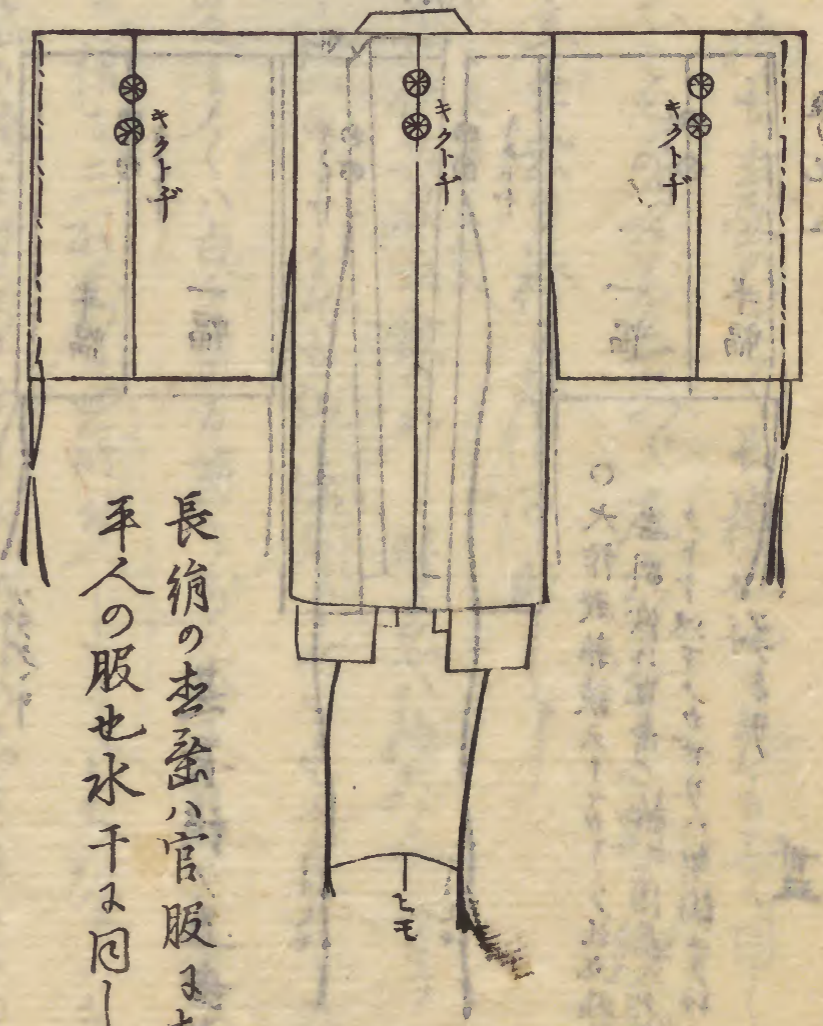 キクトヂ
キクトヂ
キクトヂ
ヒモ
長絹の直垂ハ官服にあ
平人の服也水干に同し